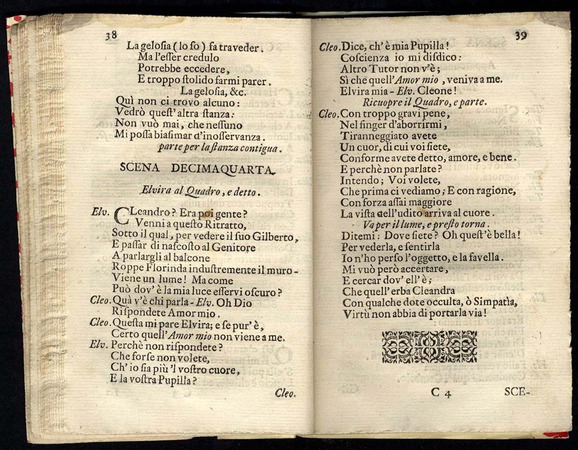 38
La gelosia (lo so) fa traveder.
Ma l'esser credulo
Potrebbe eccedere,
E troppo stolido farmi parer.
La gelosia, &c.
Quì non ci trovo alcuno:
Vedrò quest' altra stanza:
Non vuò mai, che nessuno
Mi possa biasmar d'inosservanza.
parte per la stanza contigua.
SCENA DECIMAQUARTA.
Elvira al Quadro, e detto.
Elv. CLeandro? Era poi gente?
Venni a questo Ritratto,
Sotto il qual, per vedere il suo Gilberto,
E passar di nascosto al Genitore
A parlargli al balcone
Roppe Florinda industremente il muro-
Viene un lume! Ma come
Può dov' è la mia luce esservi oscuro?
Cleo. Quà v'è chi parla- Elv. Oh Dio
Rispondete Amor mio.
Cleo. Questa mi pare Elvira; e se pur' è,
Certo quell' Amor mio non viene a me.
Elv. Perchè non rispondete?
Che forse non volete,
Ch' io sia più 'l vostro cuore,
E la vostra Pupilla?
Cleo.
39
Cleo. Dice, ch' è mia Pupilla!
Coscienza io mi disdico:
Altro Tutor non v'è;
Sì che quell' Amor mio, veniva a me.
Elvira mia- Elv. Cleone!
Ricuopre il Quadro, e parte.
Cleo. Con troppo gravi pene,
Nel finger d'aborrirmi,
Tiranneggiato avete
Un cuor, di cui voi siete,
Conforme avete detto, amore, e bene.
E perchè non parlate?
Intendo; Voi volete,
Che prima ci vediamo; E con ragione,
Con forza assai maggiore
La vista dell'udito arriva al cuore.
Va per il lume, e presto torna.
Ditemi: Dove siete? Oh quest'è bella!
Per vederla, e sentirla
Io n'ho perso l'oggetto, e la favella.
Mi vuò però accertare,
E cercar dov' ell' è;
Che quell' erba Cleandra
Con qualche dote occulta, ò Simpatìa,
Virtù non abbia di portarla via!
C 4
SCE-